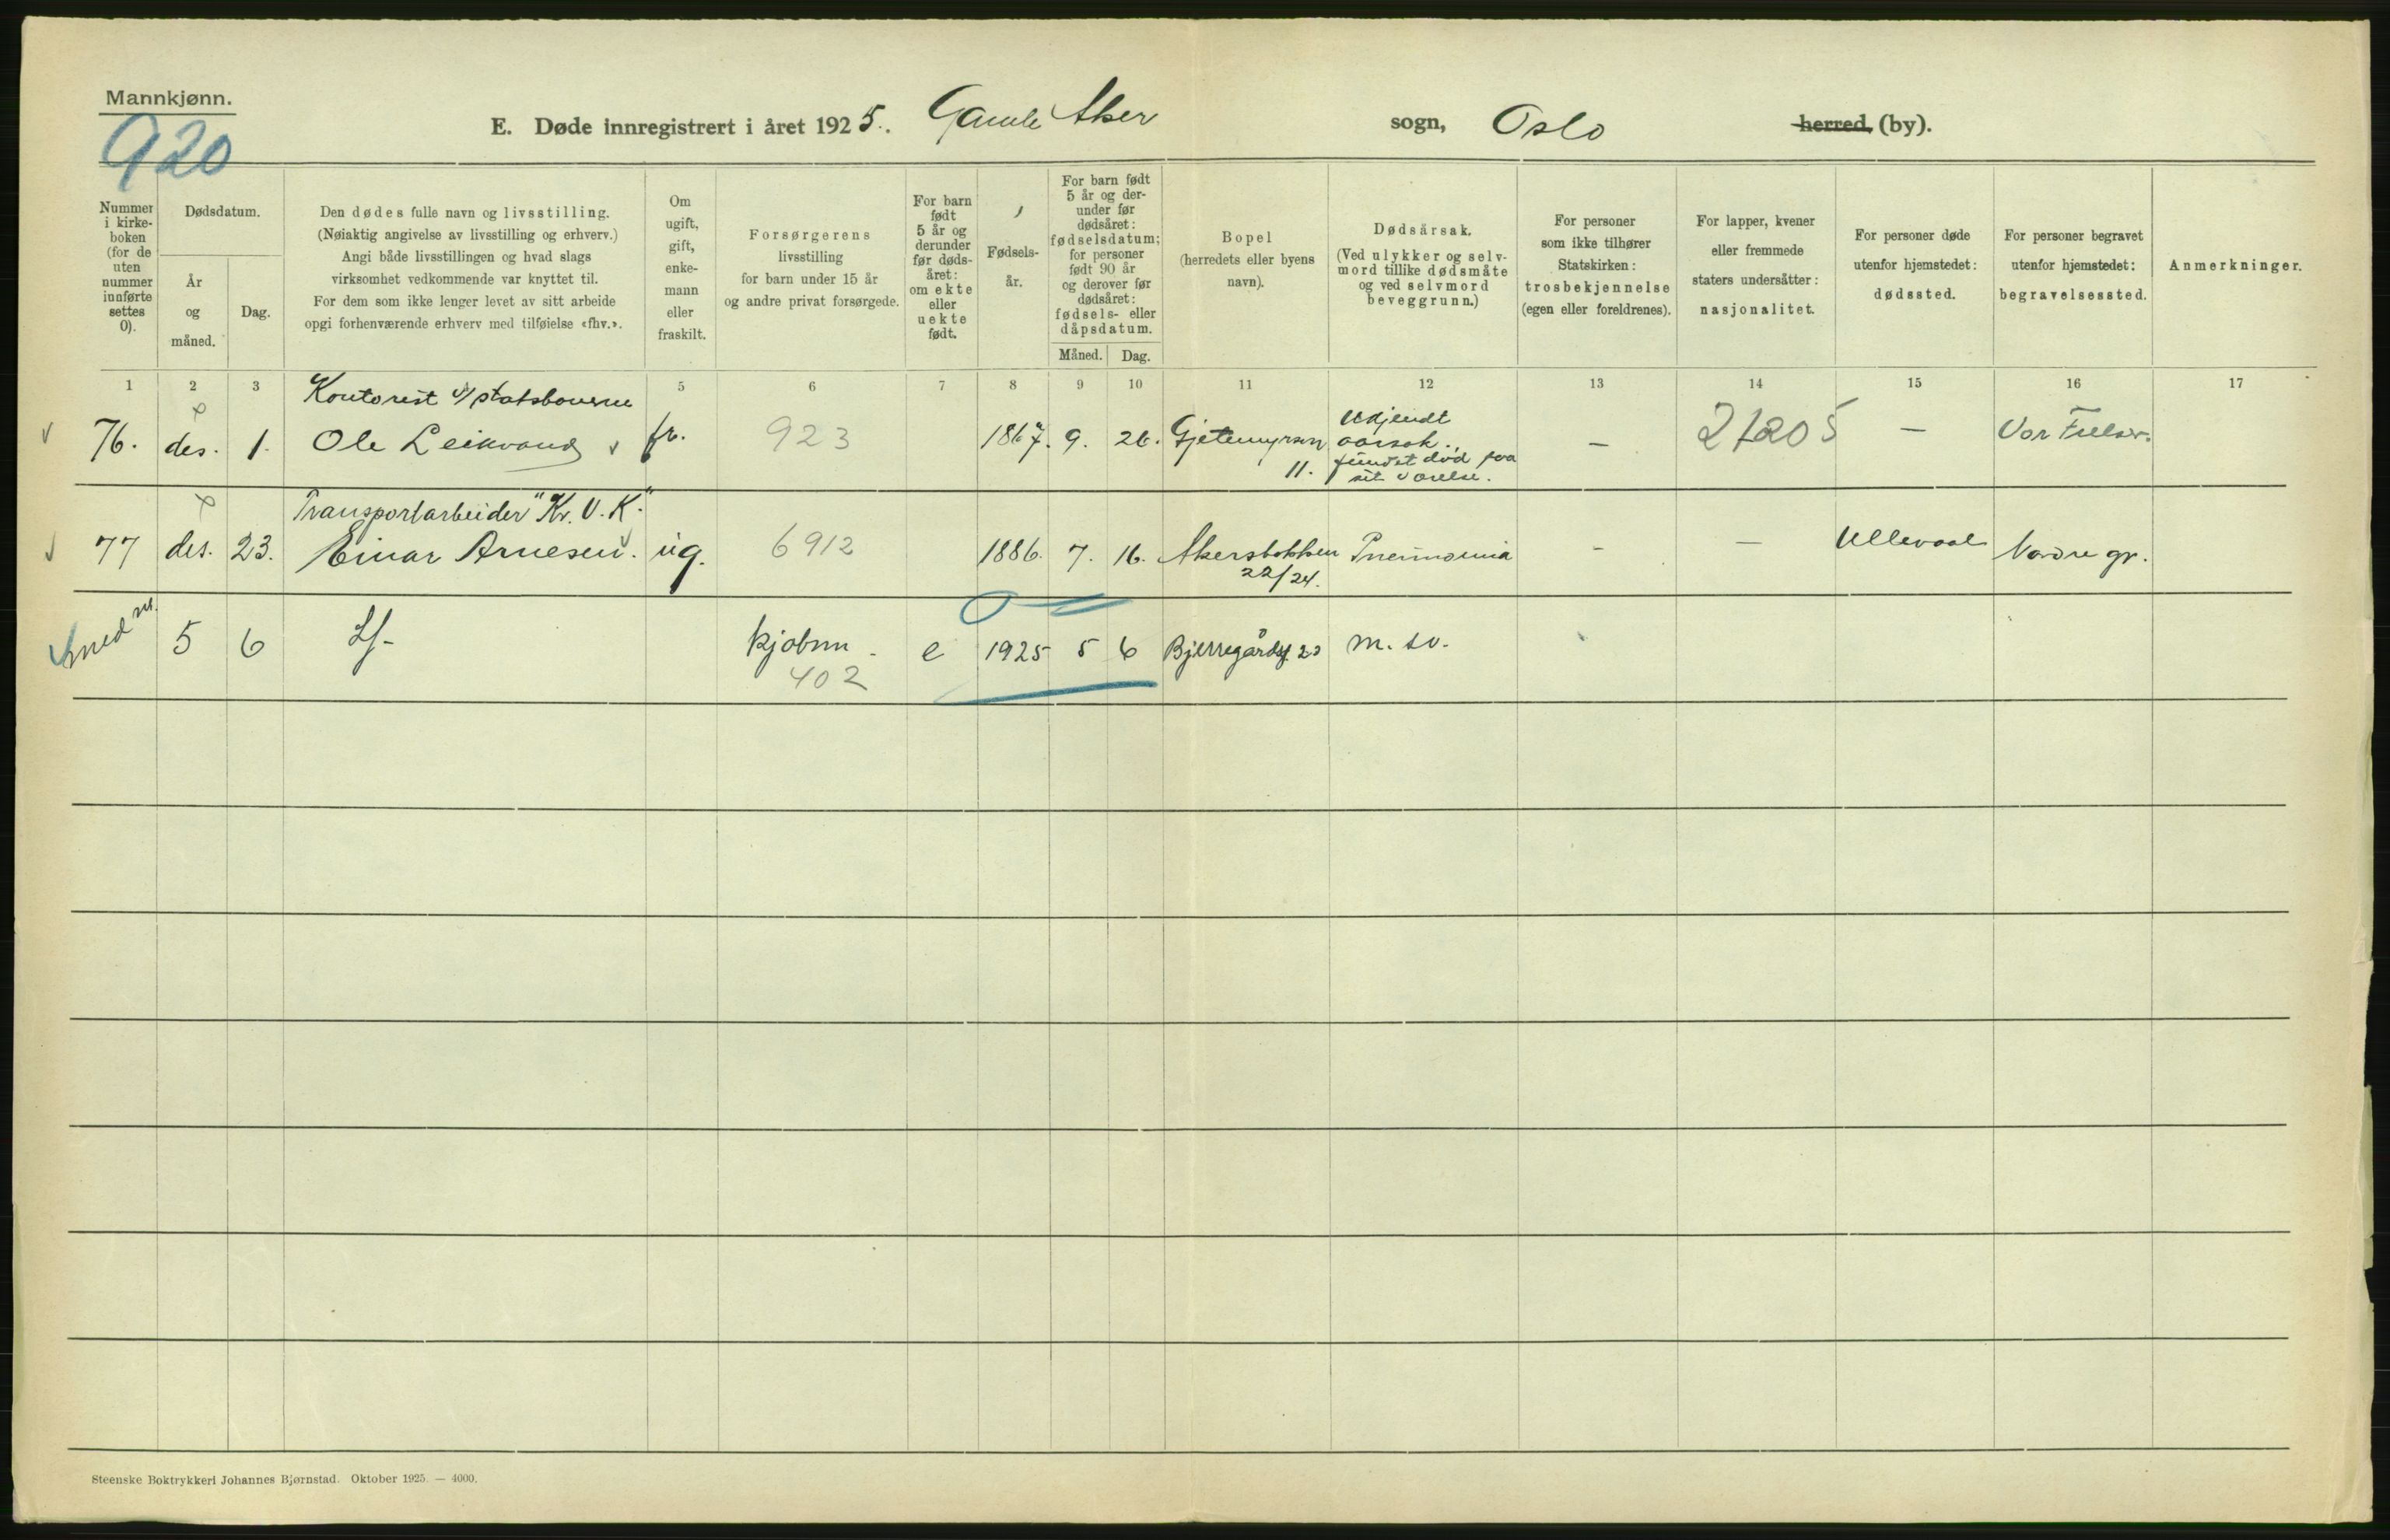 Mannkjønn.
920
E. Døde innregistrert i året 1925. Gamle Aker sogn, Oslo herred, (by).
Nummer i kirke- boken (for de uten nummer innførte settes 0).
Dødsdatum.
År og måned.
Dag.
Den dødes fulle navn og livsstilling.
(Nøiaktig angivelse av livsstilling og erhverv.)
Angi både livsstillingen og hvad slags
virksomhet vedkommende var knyttet til.
For dem som ikke lenger levet av sitt arbeide
opgi forhenværende erhverv med tilføielse «fhv.».
Om ugift, gift, enke- mann eller fraskilt.
Forsørgerens
livsstilling
for barn under 15 år
og andre privat forsørgede.
For barn født 5 år og derunder før døds- året: om ekte eller uekte født.
Fødsels- år.
For barn født 5 år og der- under før dødsåret: fødselsdatum; for personer født 90 år og derover før dødsåret: fødsels- eller dåpsdatum.
Måned. Dag.
Bopel
(herredets eller byens navn).
Dødsårsak.
(Ved ulykker og selv- mord tillike dødsmåte og ved selvmord beveggrunn.)
For personer som ikke tilhører Statskirken: trosbekjennelse (egen eller foreldrenes).
For lapper, kvener eller fremmede staters undersåtter: nasjonalitet.
For personer døde utenfor hjemstedet: dødssted.
For personer begravet utenfor hjemstedet: begravelsessted.
Anmerkninger.
1 2 3 5 6 7 8 9 10 11 12 13 14 15 16 17
Kontorist v/ statsbanerne
76. des. 1. Ole Leikvand fr. 923 1867. 9. 26. Gjetemyrsvn 11. Ukjendt aarsak. fundet død paa sit værelse. — 21205 — Vor Frelser.
Transportarbeider "Kr. V. K."
77 des. 23. Einar Arnesen. ug. 6912 1886. 7. 16. Akersbakken 22/24. Pneumonia - — Ullevaal Nordre gr.
5 6 Lf- kjøbm. e 1925 5 6 Bjerregårdsg. 20 m. sv.
402
Steenske Boktrykkeri Johannes Bjørnstad. Oktober 1925. — 4000.